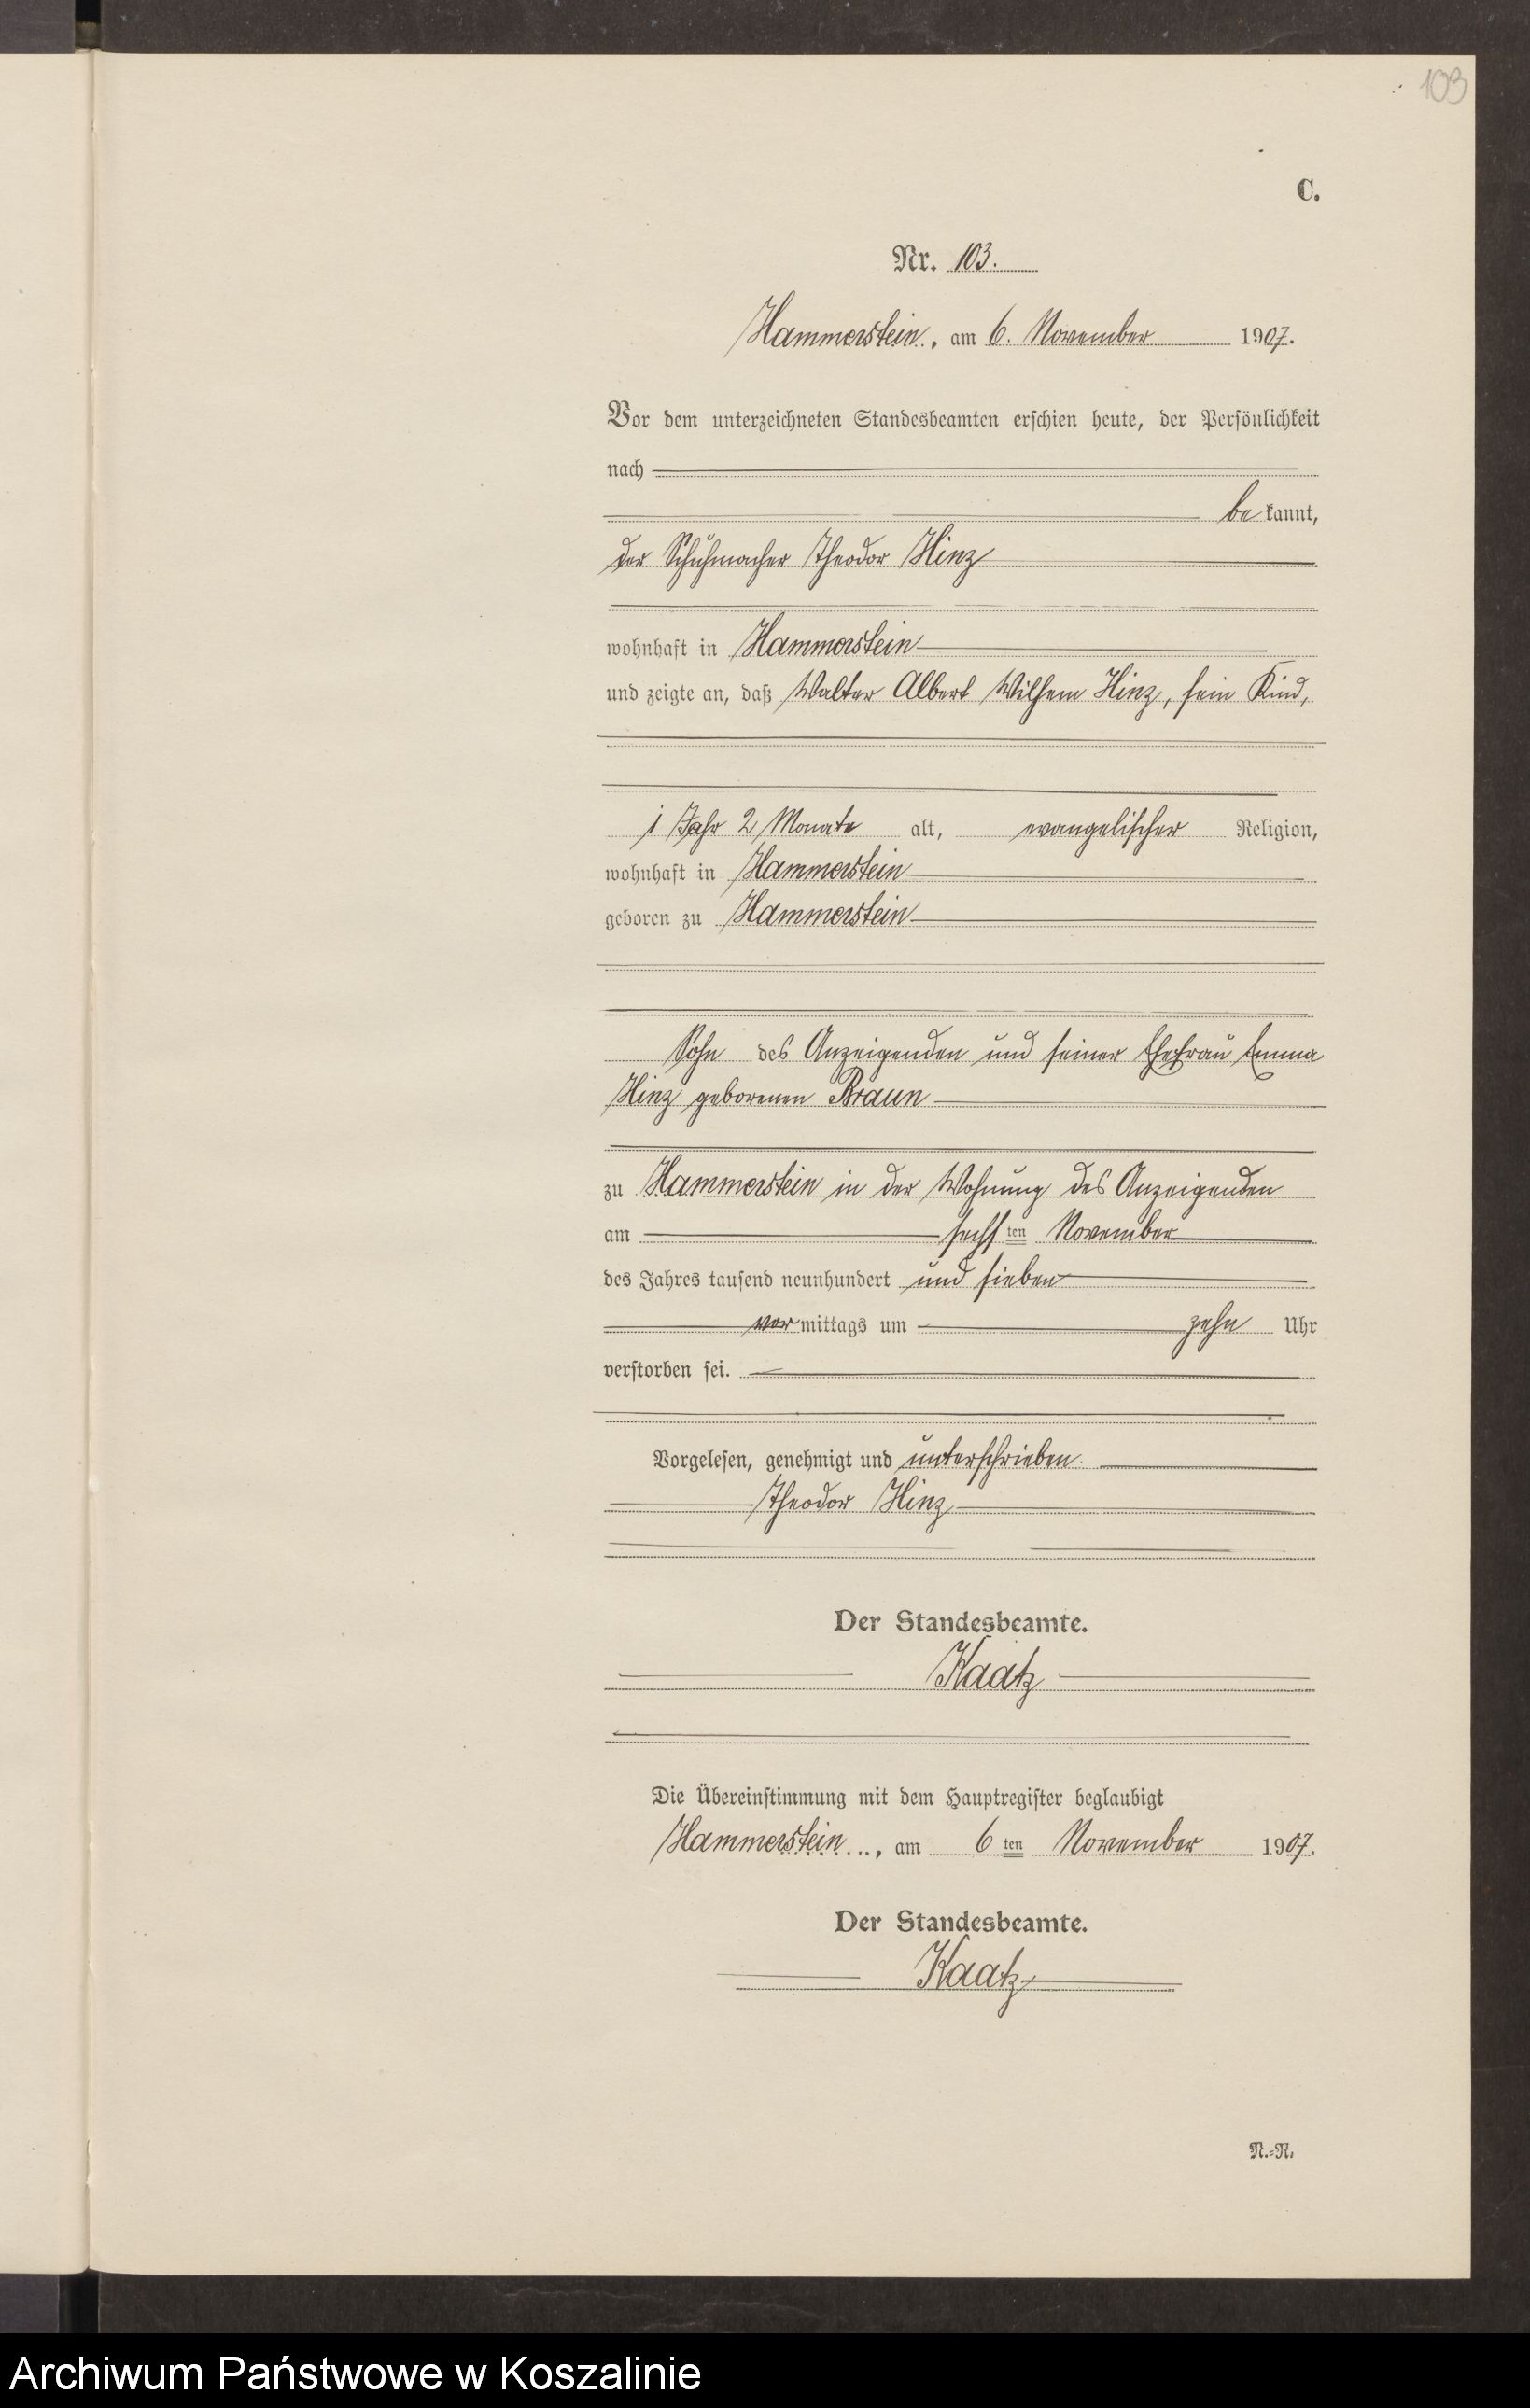 103
C.
Nr. 103.
Hammerstein, am 6. November 1907.
Vor dem unterzeichneten Standesbeamten erschien heute, der Persönlichkeit
nach
be kannt,
der Schuhmacher Theodor Hinz
wohnhaft in Hammerstein
und zeigte an, daß Walter Albert Wilhem Hinz, sein Kind,
1 Jahr 2 Monate alt, evangelischer Religion,
wohnhaft in Hammerstein
geboren zu Hammerstein
Sohn des Anzeigenden und seiner Ehefrau Emma
Hinz geborenen Braun
zu Hammerstein in der Wohnung des Anzeigenden
am sechsten November
des Jahres tausend neunhundert und sieben
vormittags um zehn Uhr
verstorben sei.
Vorgelesen, genehmigt und unterschrieben.
Theodor Hinz
Der Standesbeamte.
Kaatz
Die Übereinstimmung mit dem Hauptregister beglaubigt
Hammerstein, am 6ten November 1907.
Der Standesbeamte.
Kaatz
N.-N.
Archiwum Państwowe w Koszalinie